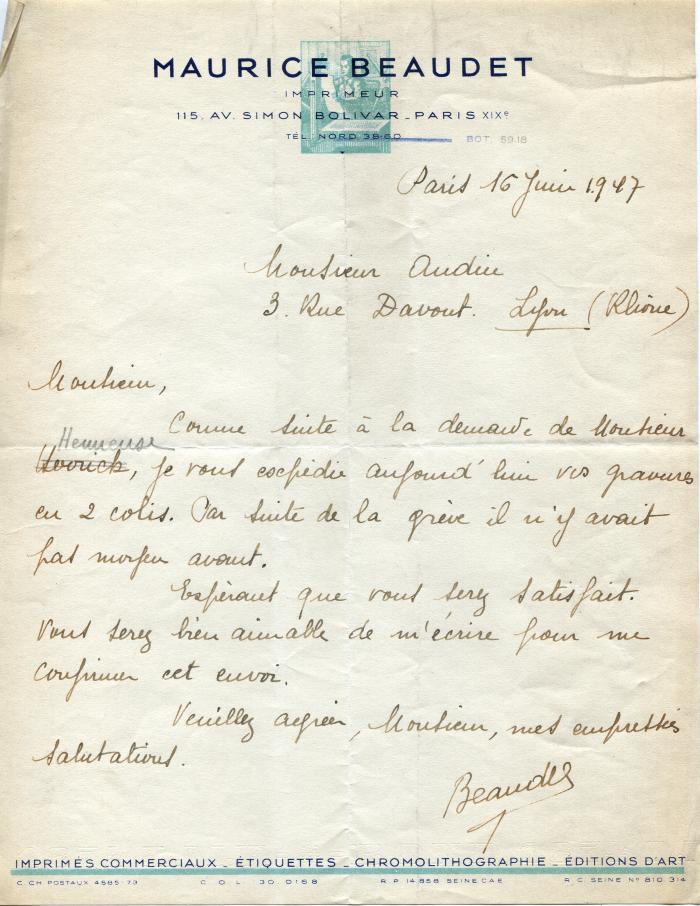 MAURICE BEAUDET
IMPRIMEUR
115, AV. SIMON BOLIVAR - PARIS XIXe
TÉL. NORD 38-60 BOT. 59.18
Paris 16 Juin 1947
Monsieur Audin
3. Rue Davout. Lyon (Rhône)
Monsieur,
Comme suite à la demande de Monsieur
Henneuse
, je vous expédie aujourd'hui vos gravures
en 2 colis. Par suite de la grève il n'y avait
pas moyen avant.
Espérant que vous serez satisfait.
Vous serez bien aimable de m'écrire pour me
confirmer cet envoi.
Veuillez agréer, Monsieur, mes empressées
salutations.
Beaudet
IMPRIMÉS COMMERCIAUX - ÉTIQUETTES - CHROMOLITHOGRAPHIE - ÉDITIONS D'ART
C. CH. POSTAUX 4585-73 C O L . 30.0168 R. P. 14.858 SEINE CAE R. C. SEINE No 810 314